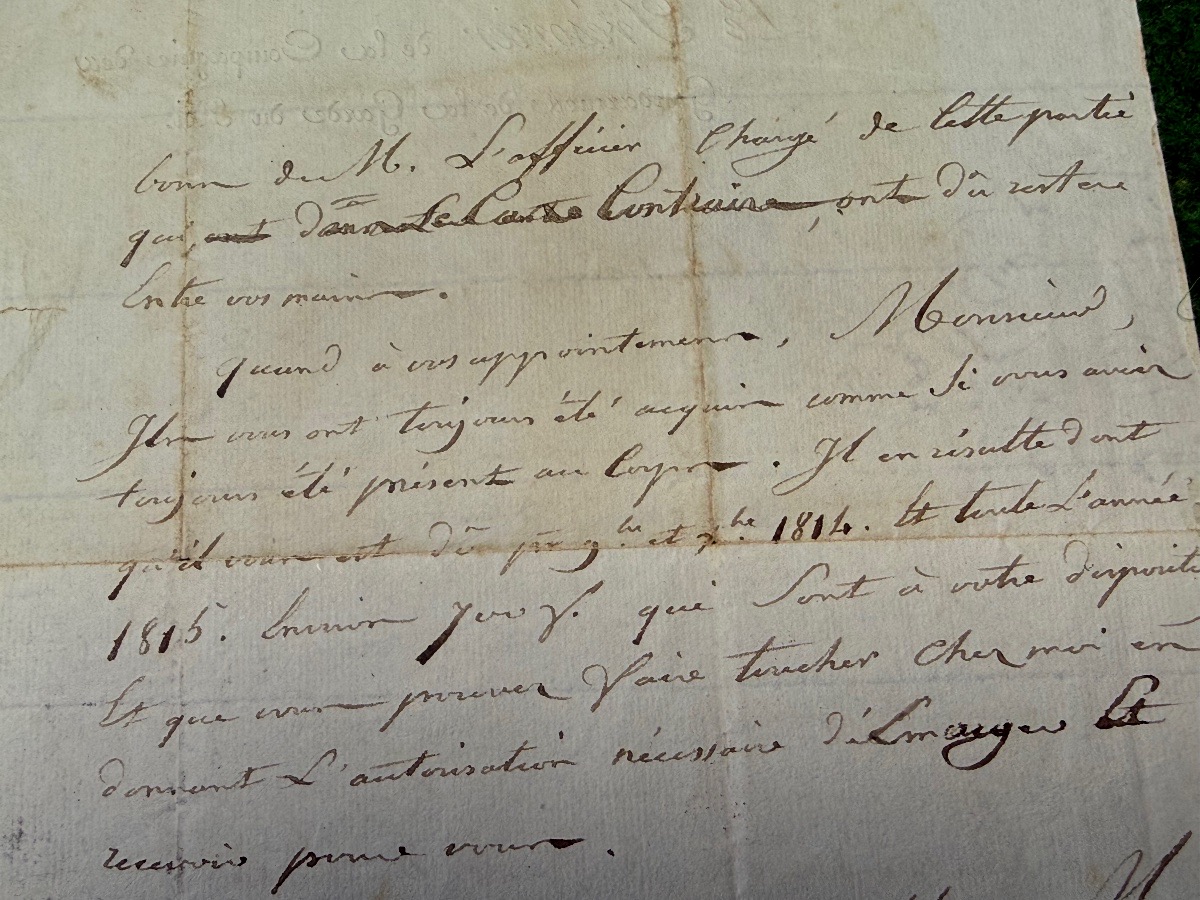 Le Trésorier de la Compagnie des
Gendarmes de la Garde du Roi
bons de M. L'officier Chargé de Cette partie
qui, ont dans Le Cas Contraire, ont dû rester
Entre vos mains.
quand à vos appointemens, Monsieur,
Ils vous ont toujours été acquis comme Si vous aviez
toujours été présent au Corps. Il en résulte dont
qu'il vous est dû pr 9bre et Xbre 1814. Et toute L'année
1815. Environ 700 f. qui Sont à votre dispositi
Et que vous pouvez faire toucher Chez moi en
donnant L'autorisation nécessaire d'Emarger Et
recevoir pour vous.
M